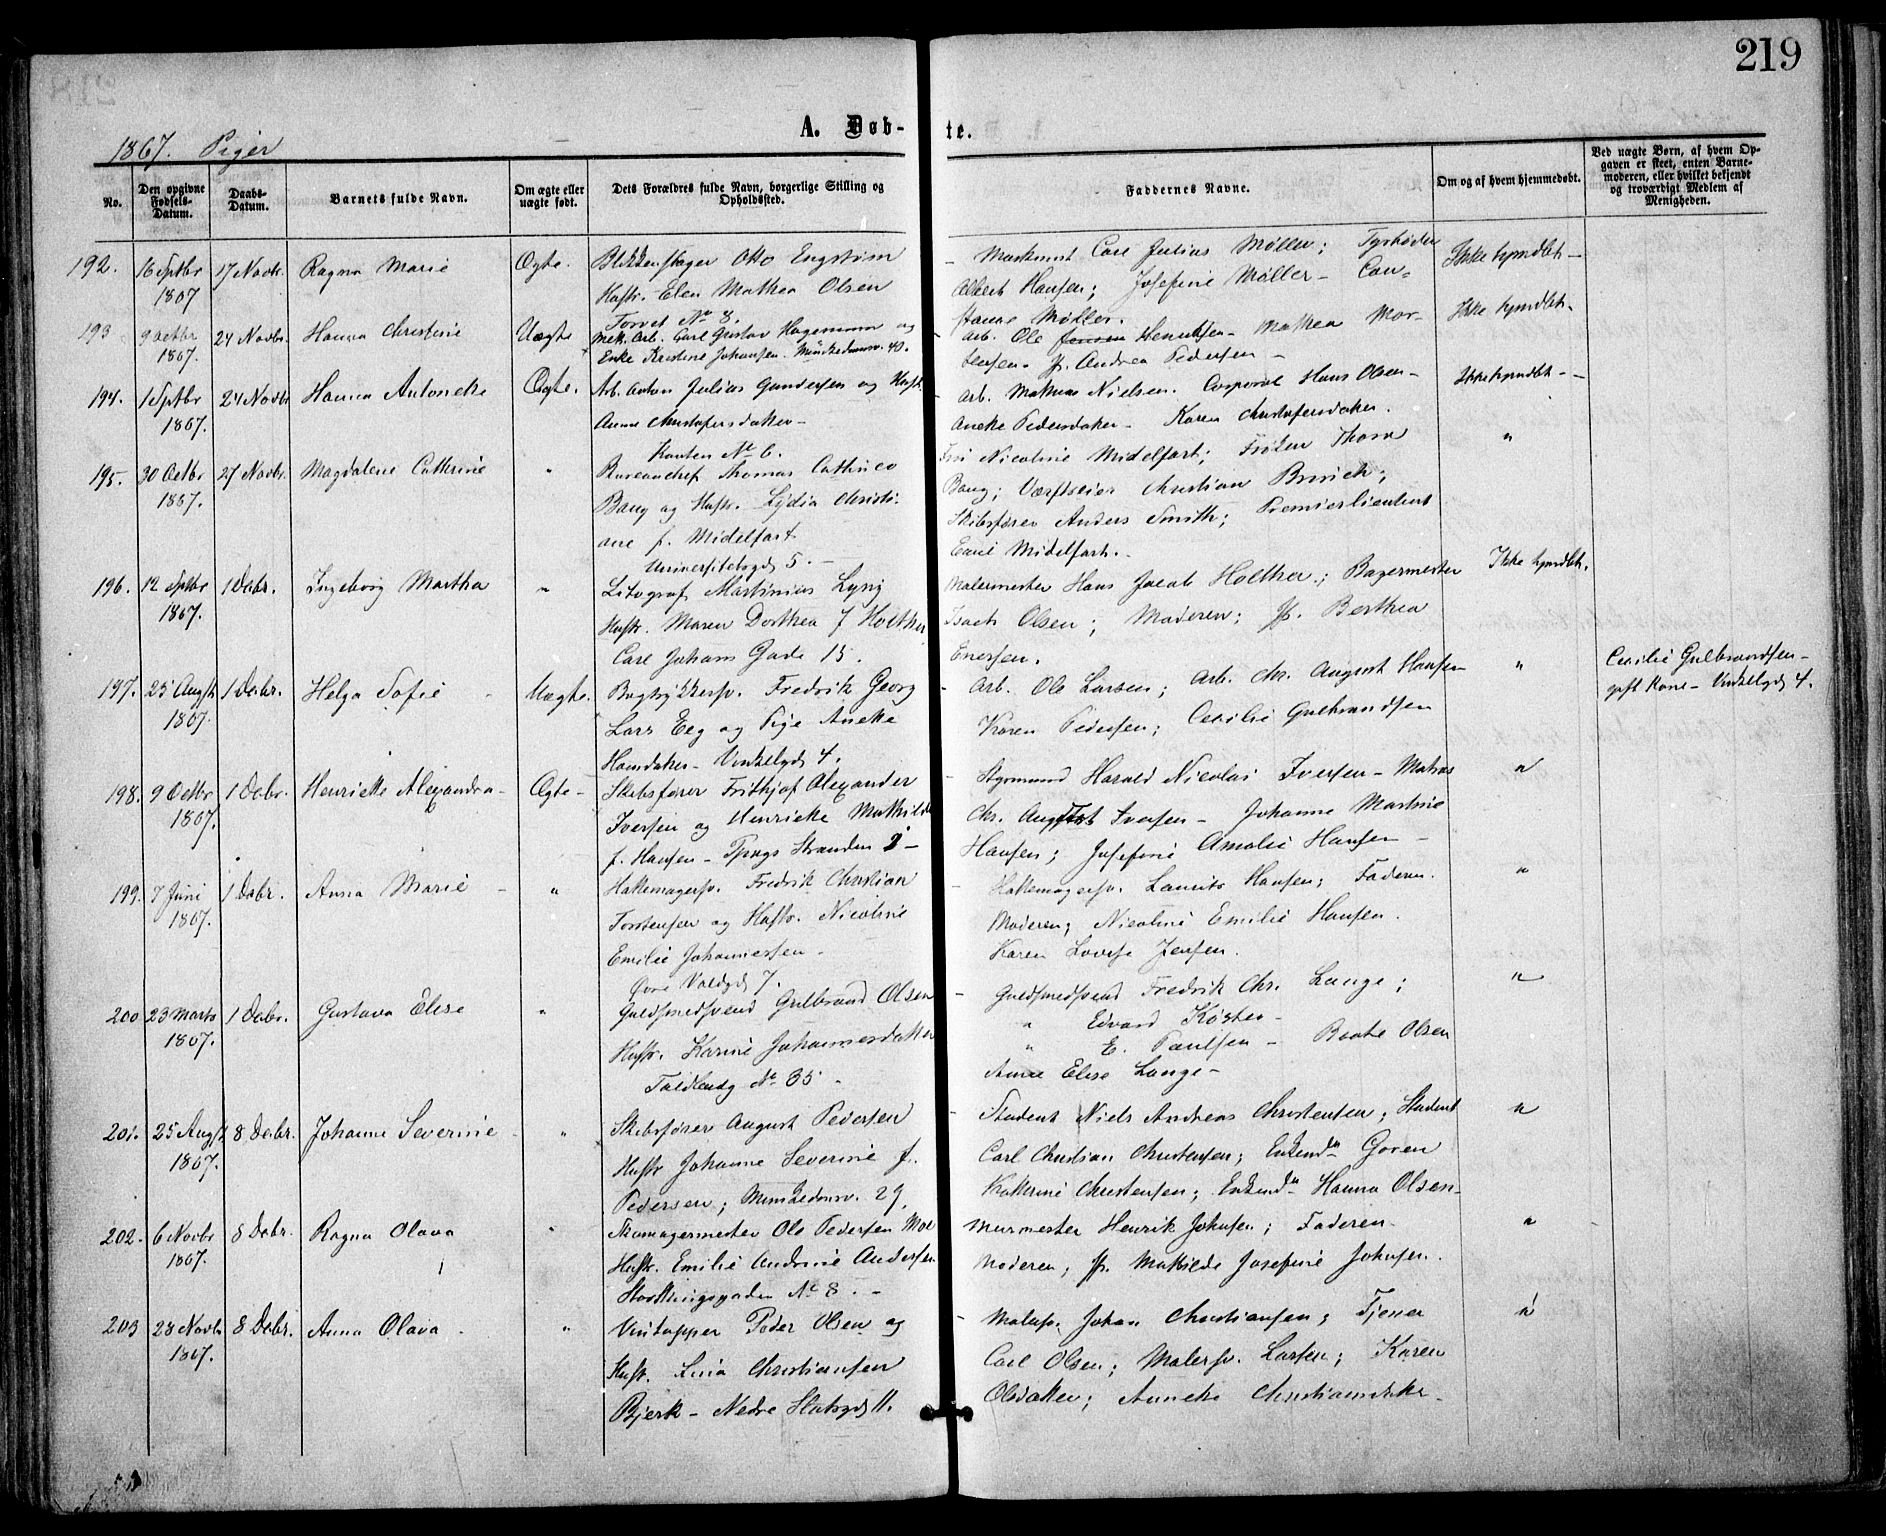 219
A. Døb-te.
1867. Piger
No.
Den opgivne Fødsels-Datum.
Daabs-Datum.
Barnets fulde Navn.
Om ægte eller uægte født.
Dets Forældres fulde Navn, borgerlige Stilling og Opholdssted.
Faddernes Navne.
Om og af hvem hjemmedøbt.
Ved uægte Børn, af hvem Opgaven er skeet, enten Barnemoderen, eller hvilket bekjendt og troværdigt Medlem af Menigheden.
192. 16 Septbr 1867 17 Novbr. Ragna Marie Ægte.
Blikkenslager Otto Engstrøm
Hustr. Elen Mathea Olsen
Torvet No 8.
Maskinist Carl Julius Møller;
Albert Hansen; Josefine Møller - Con-
stance Møller.
Ikke hjmdbt -
193 9 Octbr 1867. 24 Novbr. Hanna Christine Uægte
Mek. Arb. Carl Gustav Hagemann og
Enke Kristine Johansen. Munkedamsv. 40.
Arb. Ole Jensen Henriksen - Mathea Mor-
tensen - P. Andrea Pedersen -
Ikke hjmdbt.
194. 1 Septbr 1867. 24 Novbr Hanna Antonette Ægte.
Arb. Anton Julius Gundersen og Hust.
Anne Christofersdatter -
No 6.
Arb. Mathias Nielsen. Corporal Hans Olsen -
Anette Pedersdatter - Karen Christofersdatter.
Ikke hjmdbt - -
195. 30 Octbr 1867. 27 Novbr. Magdalene Cathrine "
Bureauchef Thomas Cathinco
Bang og Hustr. Lydia Christi-
ane f. Midelfart
Universitetsgd 5. -
Fru Nicoline Midelfart; Frøken Thora
Bang; Værftseier Christian Brinch;
Skibsfører Anders Smith; Premierlieutnt
Emil Midelfart. -
"
196. 12 Septbr 1867. 1 Debr. Ingeborg Martha "
Litograf Martinius Lyng
Hustr. Maren Dorthea f Holther
Carl Johans Gade 15.
Malermester Hans Jacob Holther; Bagermester
Isach Olsen; Moderen; P. Berthea
Enersen.
Ikke hjmdbt.
197. 25 Augst 1867. 1 Debr. Helga Sofie Uægte.
Bogtrykkersv. Fredrik Georg
Lars Eeg og Pige Anette
Hansdatter - Vinkelgd 4.
Arb. Ole Larsen; Arb. Chr. August Hansen
Karen Pedersen; Cecilie Gulbrandsen
"
Cecilie Gulbrandsen -
gift Kone - Vinkelgd 4.
198. 9 Octbr 1867. 1 Debr. Henriette Alexandra - Ægte -
Skibsfører Frithjof Alexander
Iversen og Henriette Mathilde
f. Hansen - Tjuvs Stranden 2 -
Styrmand Harald Nicolai Iversen - Matros
Chr. August Iversen - Johanne Martine
Hansen; Josefine Amalie Hansen -
"
199. 7 Juni 1867. 1 Debr. Anna Marie - "
Hattemagersv. Fredrik Christian
Torstensen og Hustr. Nicoline
Emilie Johannessen -
Øvre Voldgd 7.
Hattemagersv. Laurits Hansen; Faderen.
Moderen; Nicoline Emilie Hansen.
Karen Lovise Jensen.
"
200 23 Marts 1867. 1 Debr. Gustava Elise "
Guldsmedsvend Gulbrand Olsen
Hustr. Karine Johannesdatter
No 35 -
Guldsmedsvend Fredrik Chr. Lange;
" Edvard Køster -
" E. Paulsen - Beate Olsen
Anne Elise Lange -
"
201. 25 Augst 1867. 8 Debr. Johanne Severine - "
Skibsfører August Pedersen
Hustr Johanne Severine f.
Pedersen; Munkedamsv. 29.
Student Niels Andreas Christensen; Student
Carl Christian Christensen; Enkemdm Goren
Kathrine Christensen; Enkemdm Hanna Olsen -
"
202. 6 Novbr 1867. 8 Debr. Ragna Olava "
Skomagermester Ole Pedersen Moe
Hustr. Emilie Andrine Andersen
Storthingsgaden No 8. -
Murmester Henrik Johnsen; Faderen -
Moderen; P. Mathilde Josefine Johnsen.
"
203 28 Novbr 1867. 8 Debr. Anna Olava - "
Vintapper Peder Olsen og
Hust. Lina Christiansen
Bjerk - Nedre Slotsgd 11.
Malersv. Johan Christiansen; Tjener
Carl Olsen; Malersv. Larsen; Karen
Olsdatter; Annette Christiansdatter -
"